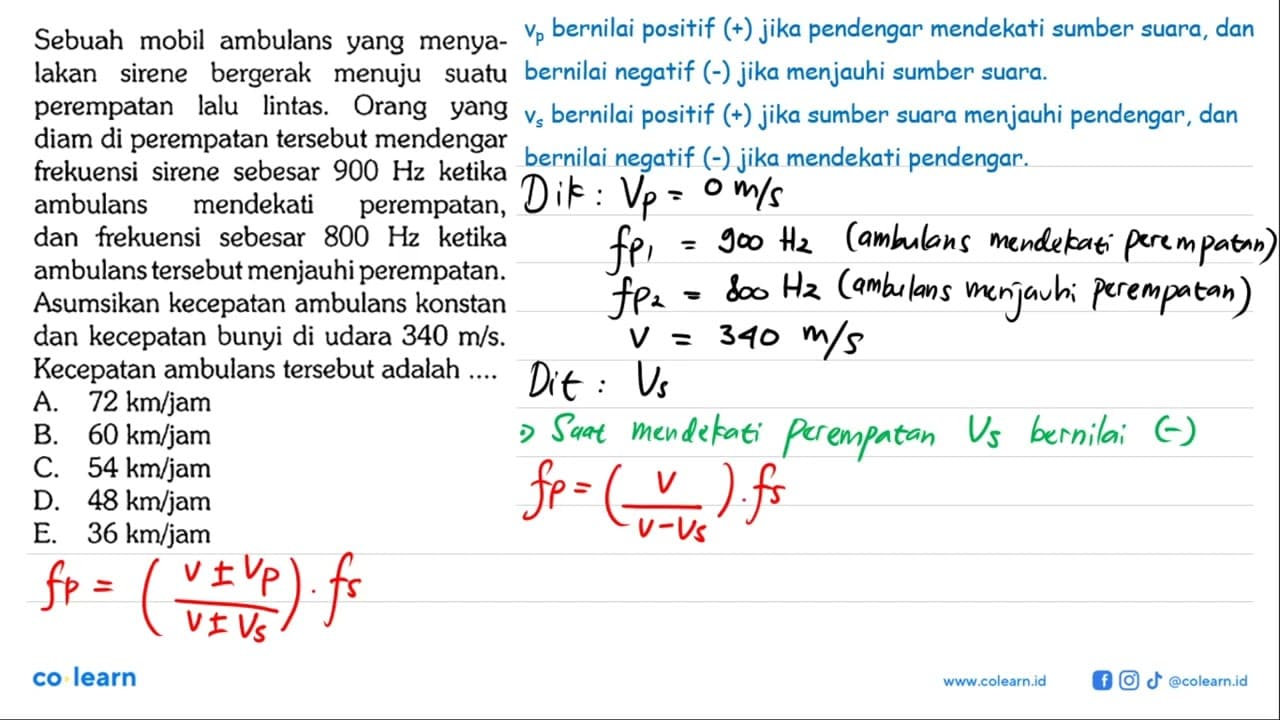 Sebuah mobil ambulans yang menya-
lakan sirene bergerak menuju suatu
perempatan lalu lintas. Orang yang
diam di perempatan tersebut mendengar
frekuensi sirene sebesar 900 Hz ketika
ambulans mendekati perempatan,
dan frekuensi sebesar 800 Hz ketika
ambulans tersebut menjauhi perempatan.
Asumsikan kecepatan ambulans konstan
dan kecepatan bunyi di udara 340 m/s.
Kecepatan ambulans tersebut adalah ....
A. 72 km/jam
B. 60 km/jam
C. 54 km/jam
D. 48 km/jam
E. 36 km/jam
fp = (v ± vp / v ± vs) . fs
vp bernilai positif (+) jika pendengar mendekati sumber suara, dan
bernilai negatif (-) jika menjauhi sumber suara.
vs bernilai positif (+) jika sumber suara menjauhi pendengar, dan
bernilai negatif (-) jika mendekati pendengar.
Dik : Vp = 0 m/s
fp1 = 900 Hz (ambulans mendekati perempatan)
fp2 = 800 Hz (ambulans menjauhi perempatan)
v = 340 m/s
Dit : Vs
⇒ Saat mendekati perempatan Vs bernilai (-)
fp = (v / v - vs) . fs
co learn
www.colearn.id
@colearn.id